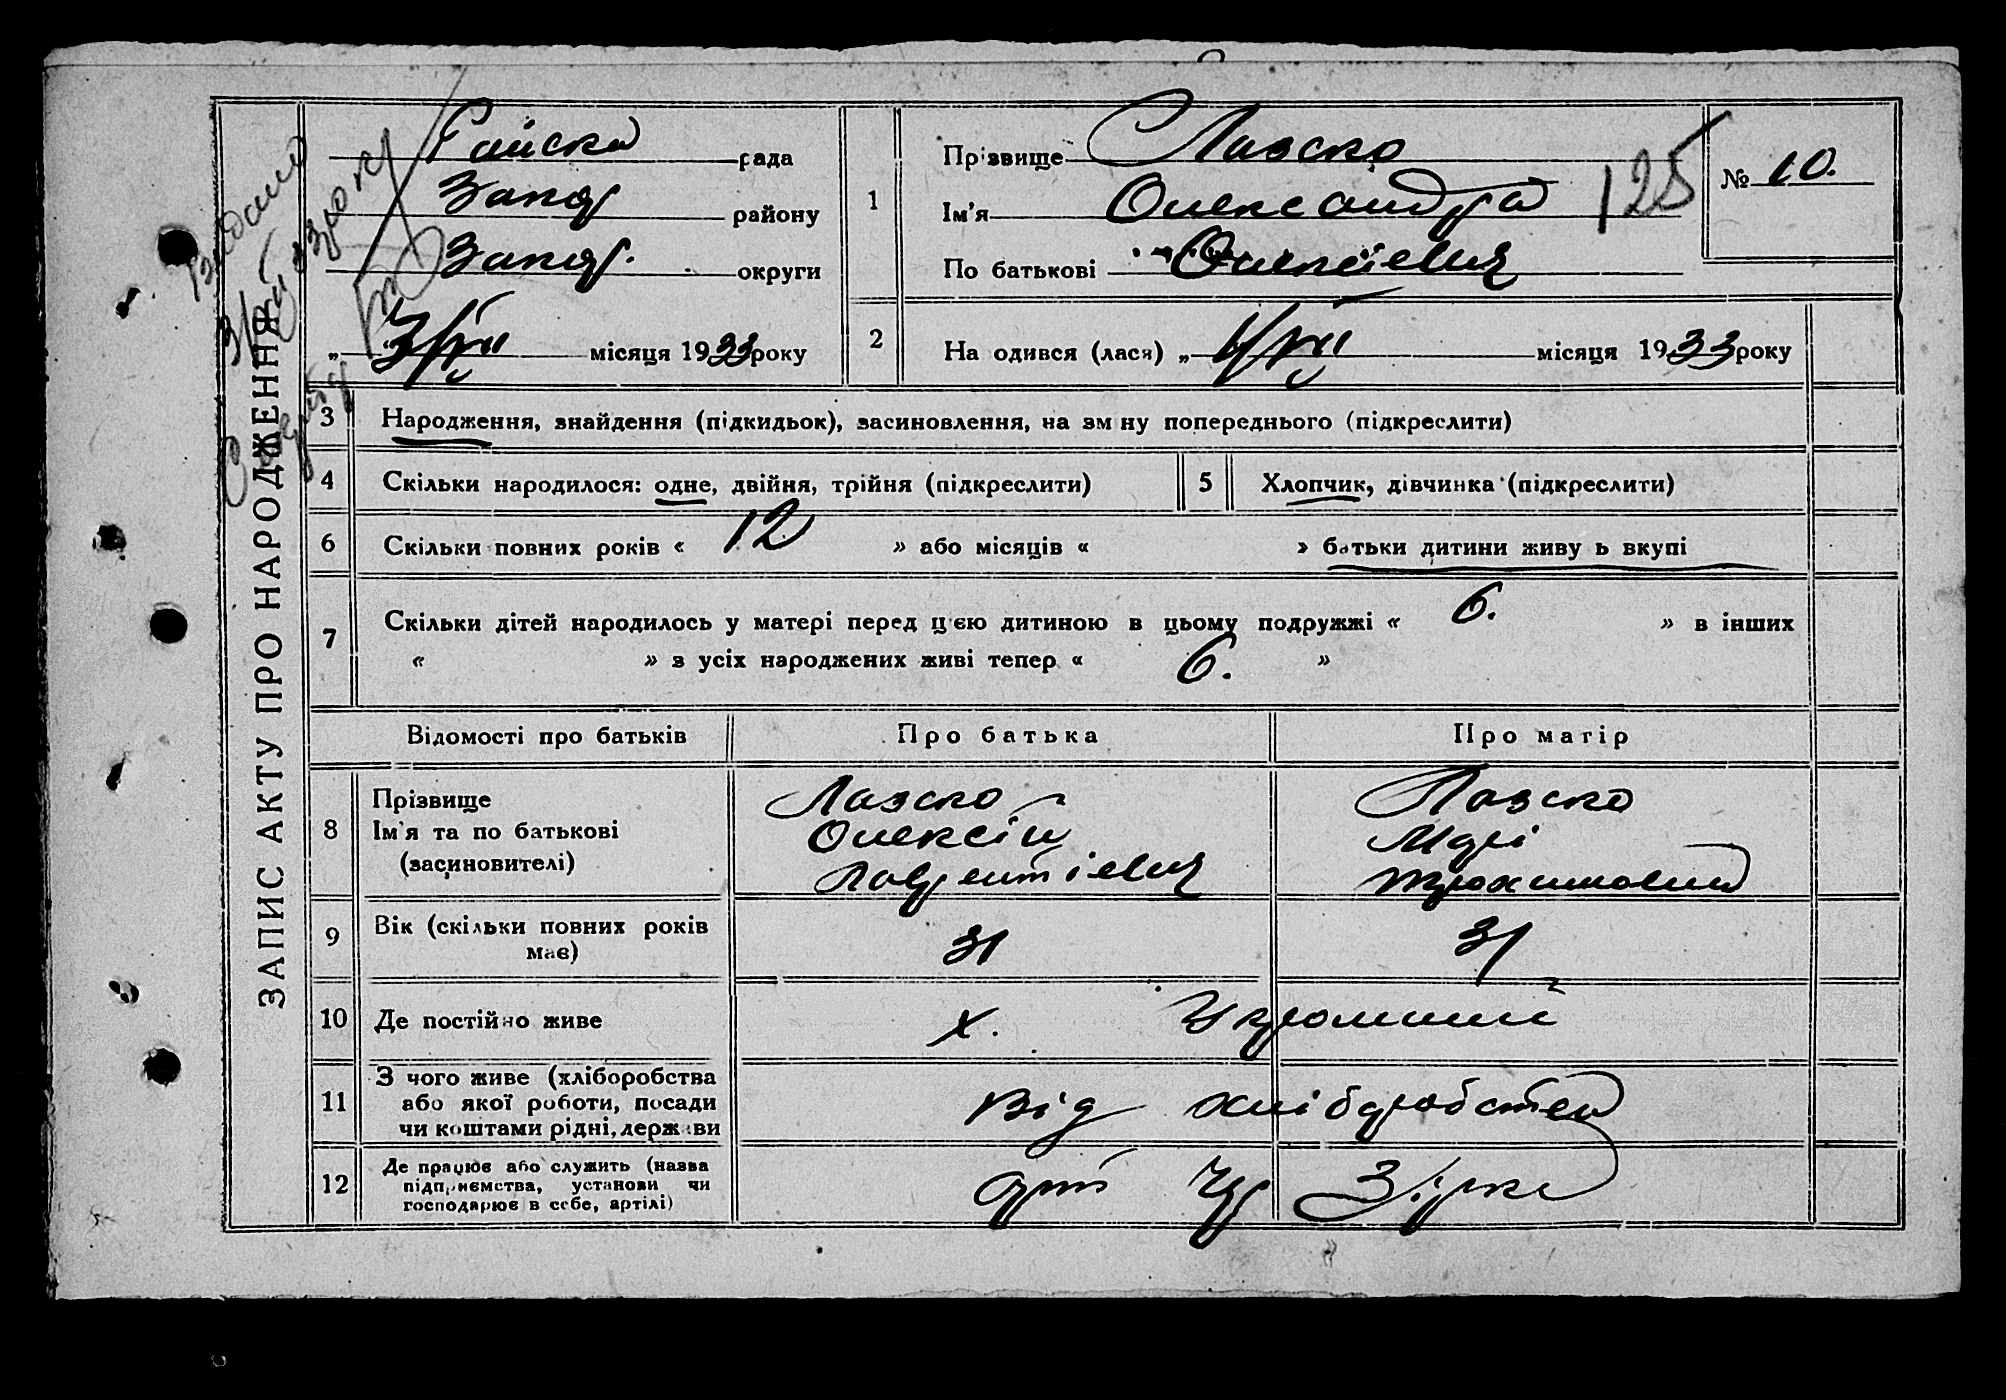 ЗАПИС АКТУ ПРО НАРОДЖЕННЯ
Райска рада
Запор району
Запор. округи
„ 3/VII місяця 1933 року
1 Прізвище Лазско
Ім'я Олександра
По батькові Олексієвич
125
№ 10.
2 На одився (лася) „ 1/VII місяця 1933 року
3 Народження, знайдення (підкидьок), засиновлення, на зм ну попереднього (підкреслити)
4 Скільки народилося: одне, двійня, трійня (підкреслити)
5 Хлопчик, дівчинка (підкреслити)
6 Скільки повних років « 12 » або місяців « » батьки дитини живу ь вкупі
7 Скільки дітей народилось у матері перед цією дитиною в цьому подружжі « 6. » в інших
« » з усіх народжених живі тепер « 6. »
Відомості про батьків Про батька Про матір
8 Прізвище
Ім'я та по батькові
(засиновителі)
Лазско
Олексій
Лаврентієвич
Лазско
Марі
Трохимовна
9 Вік (скільки повних років
має)
31
31
10 Де постійно живе
х.
11 З чого живе (хліборобства
або якої роботи, посади
чи коштами рідні, держави
від хліборобства
12 Де працює або служить (назва
підприємства, установи чи
господарює в себе, артілі)
арт Зірка